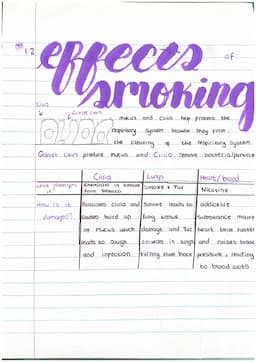 1.2
effects of
smoking
Cilia
Goblet cells
mucus and cilia help protect the
respiratory system because they form
the cleaning of the respiratory system.
Goblet cells produce mucus and Cilia remove bacteria/particle
Cilia Lungs Heart/blood
Chemicals in smoke Smoke + Tar Nicotine
from Tobacco
How is it Paralises cilia and Smoke leads to addictive
damaged? causes build up lung tissue substance makes
of mucus which damage and Tar heart beat faster
leads to cough collects in lungs and raises blood
and infection turning them black pressure, leading
to blood clots